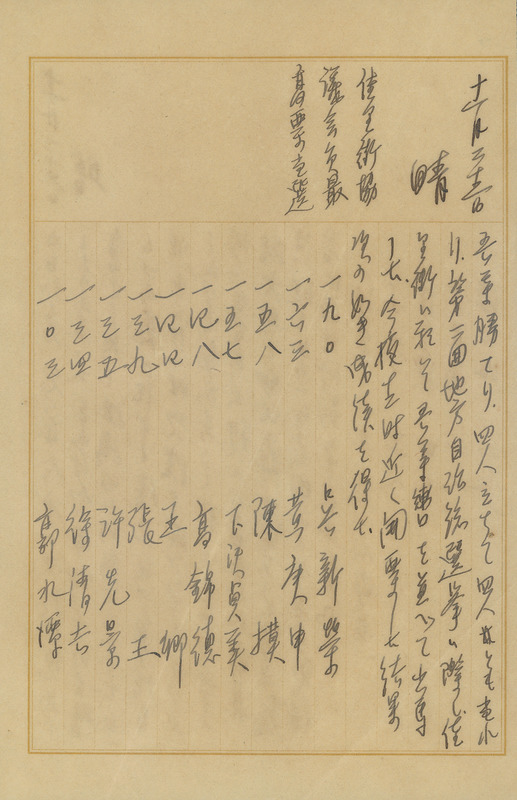 十一月二十二日
晴
佳里街協
議会員最
高票当選
吾軍勝てり、四人立ちて四人共に当れ
り、第二回地方自治総選挙に際し佳
里街に於て吾等轡を並べて出馬
した、今夜七時近く開票した結果
次の如き成績を得た
一九〇 吳新榮
一六三 黃庚申
一五八 陳
一五七 貞美
一四八 高錦德
一四四 王
一三九 張玉
一三五 許先景
一三四 徐清吉
一〇三 郭水潭